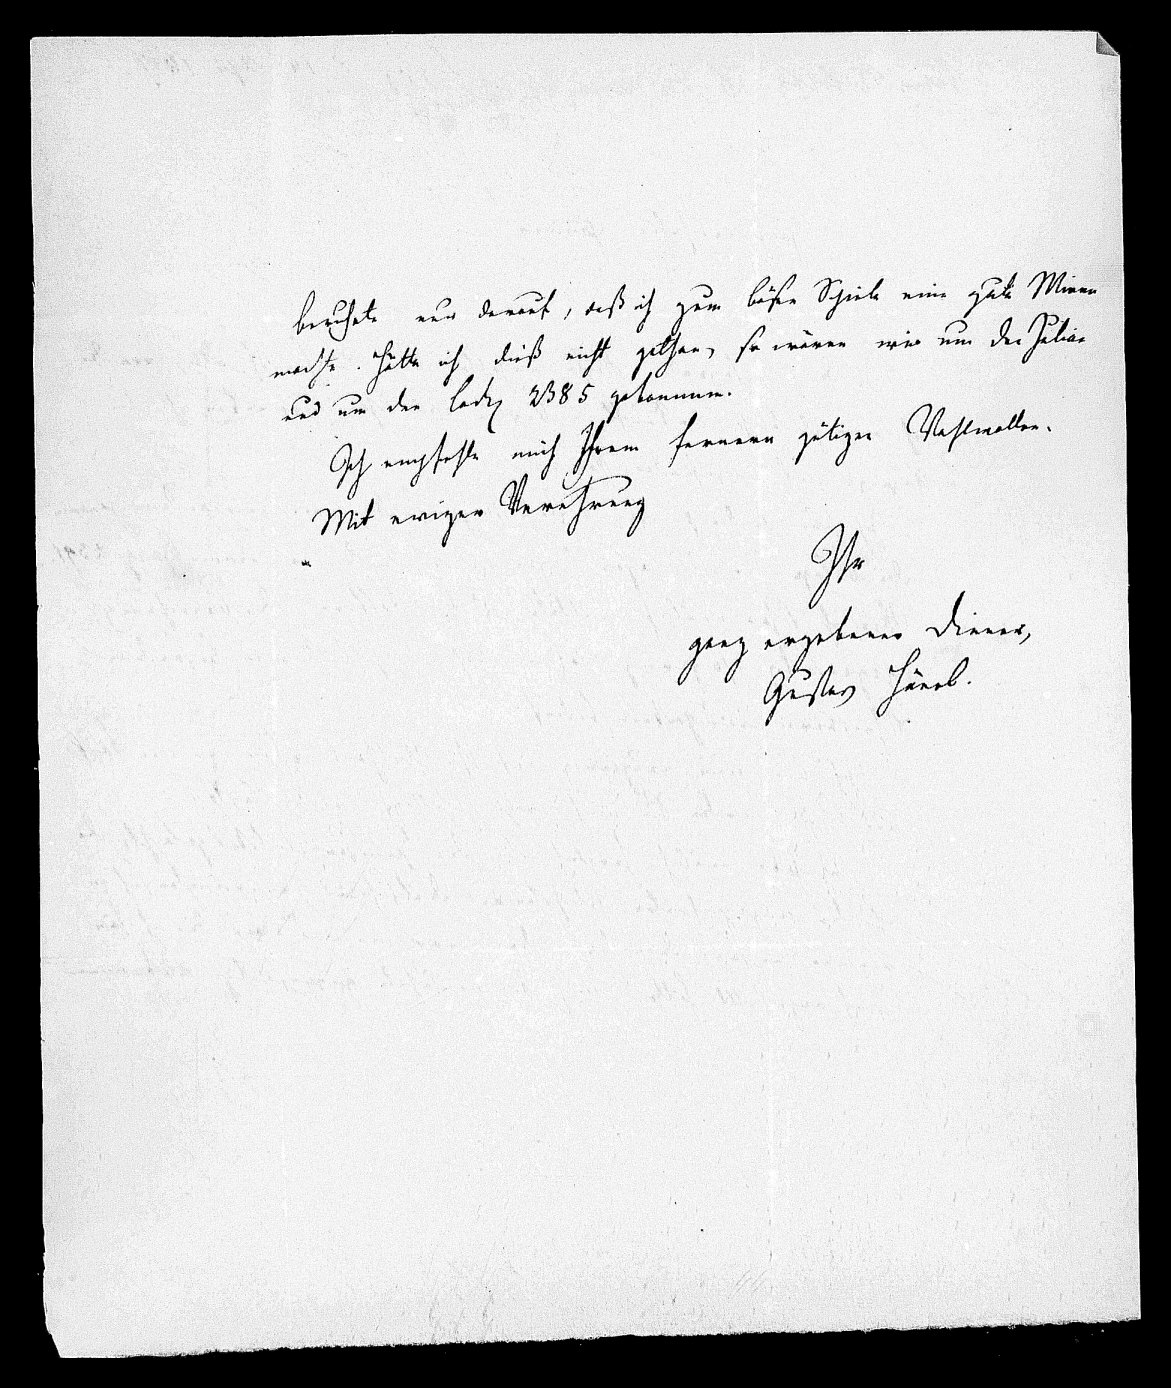 beruhete nur darauf, daß ich zum bösen Spiele eine gute Miene
machte. Hätte ich dieß nicht gethan, so wären wir um den Julian
und um den Codex 2385 gekommen.
Ich empfehle mich Ihrem fernern gütigen Wohlwollen.
Mit ewiger Verehrung
Ihr
ganz ergebener Diener,
Gustav Hänel.